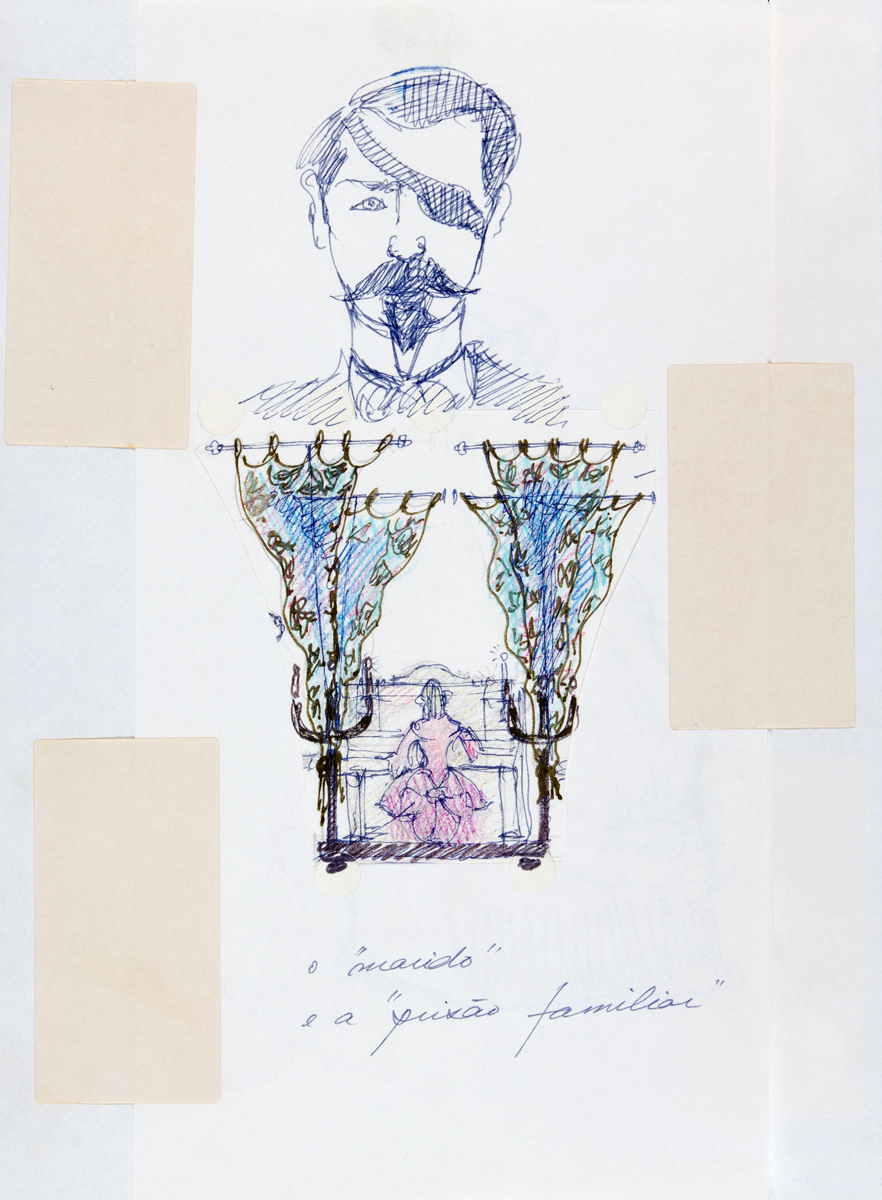 o "marido"
e a "prisão familiar"